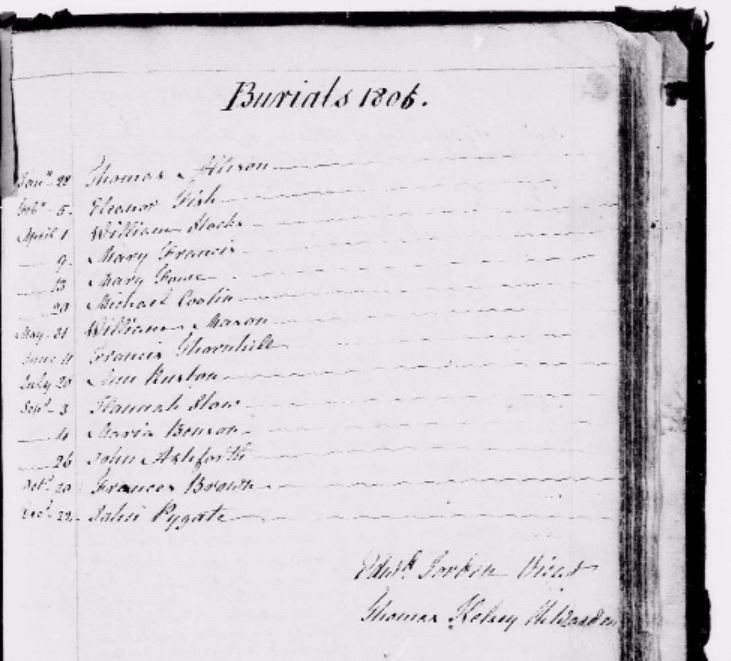 Burials 1806.
Jany. 28 Thomas Alison
Feby. 5. Eleanor Fish
April 1 William Stocks
9. Mary Francis
13 Mary
20 Michael
May. 31 William Mason
June 11 Francis Thornhill
July 20 Ann Ruston
Sept. 3 Hannah Slow
4 Maria Benson
26 John Ashforth
Oct. 20 Frances Brown
Decr. 22. John Pygate
Edwd. Vicar
Thomas Kelsey Ch. Warden